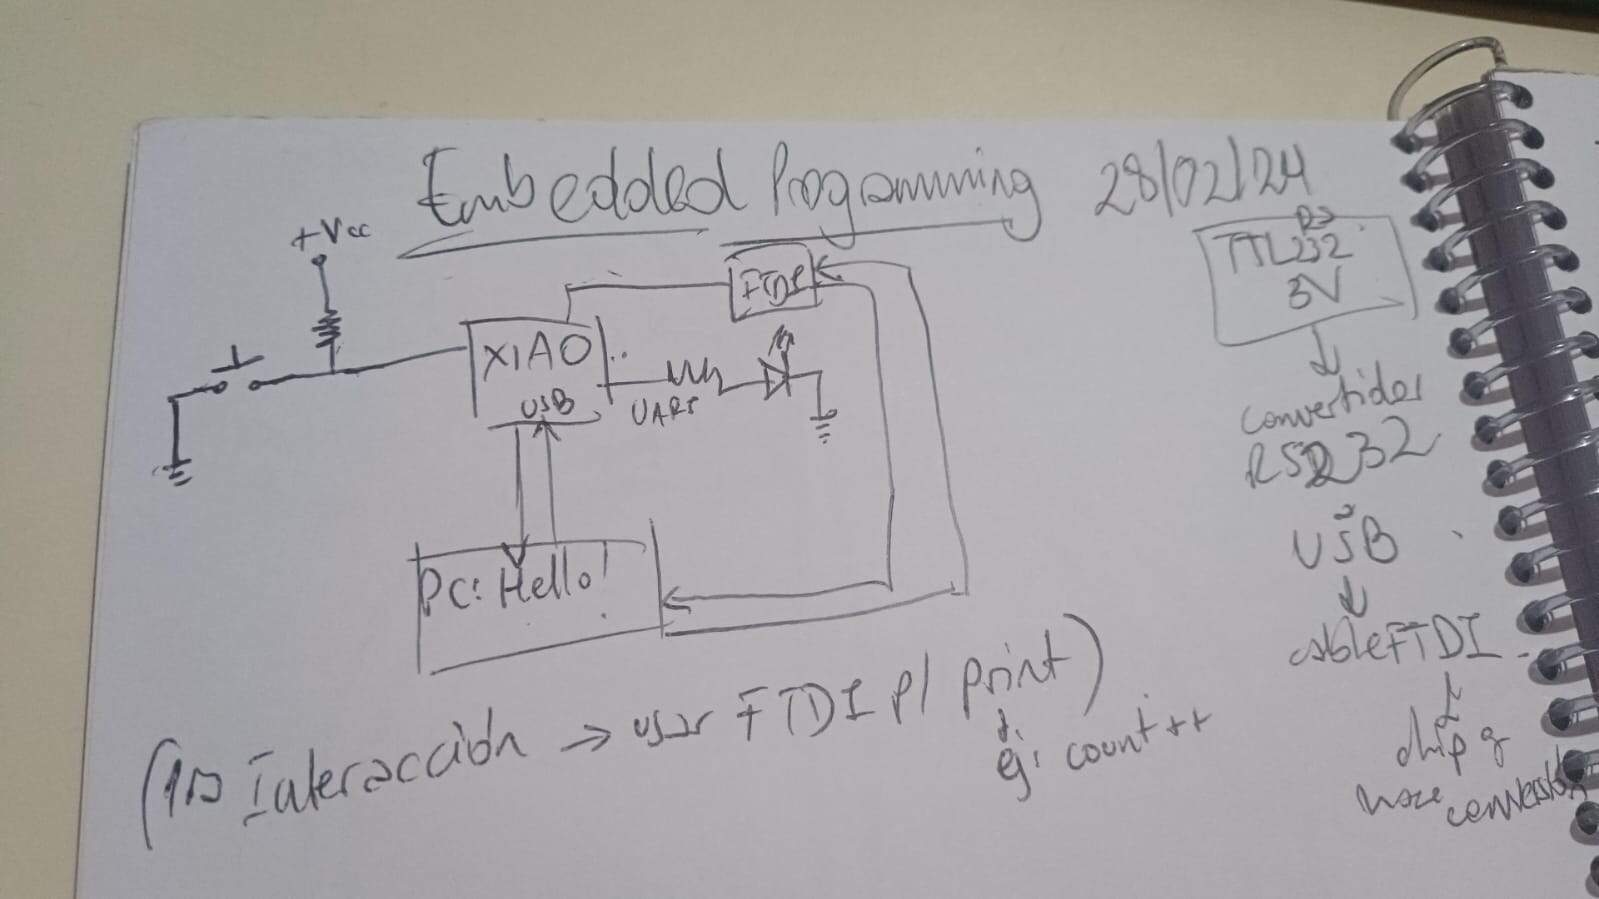 Embedded Programming 28/02/24
+Vcc
FTDI
XIAO
USB
UART
PC: Hello!
(1º Interacción → usar FTDI p/ print)
ej: count++
RS
TTL232
3V
convertidor
RS232
a
USB
cable FTDI
chip q
hace conversión